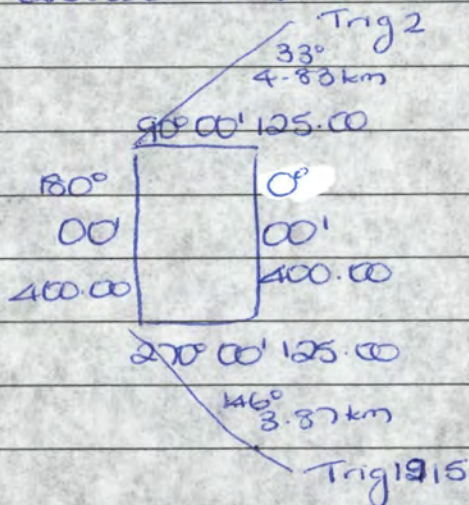 Trig 2
33°
4.83km
90° 00' 125.00
180°
00'
400.00
0°
00'
400.00
270° 00' 125.00
146°
3.87km
Trig 1915